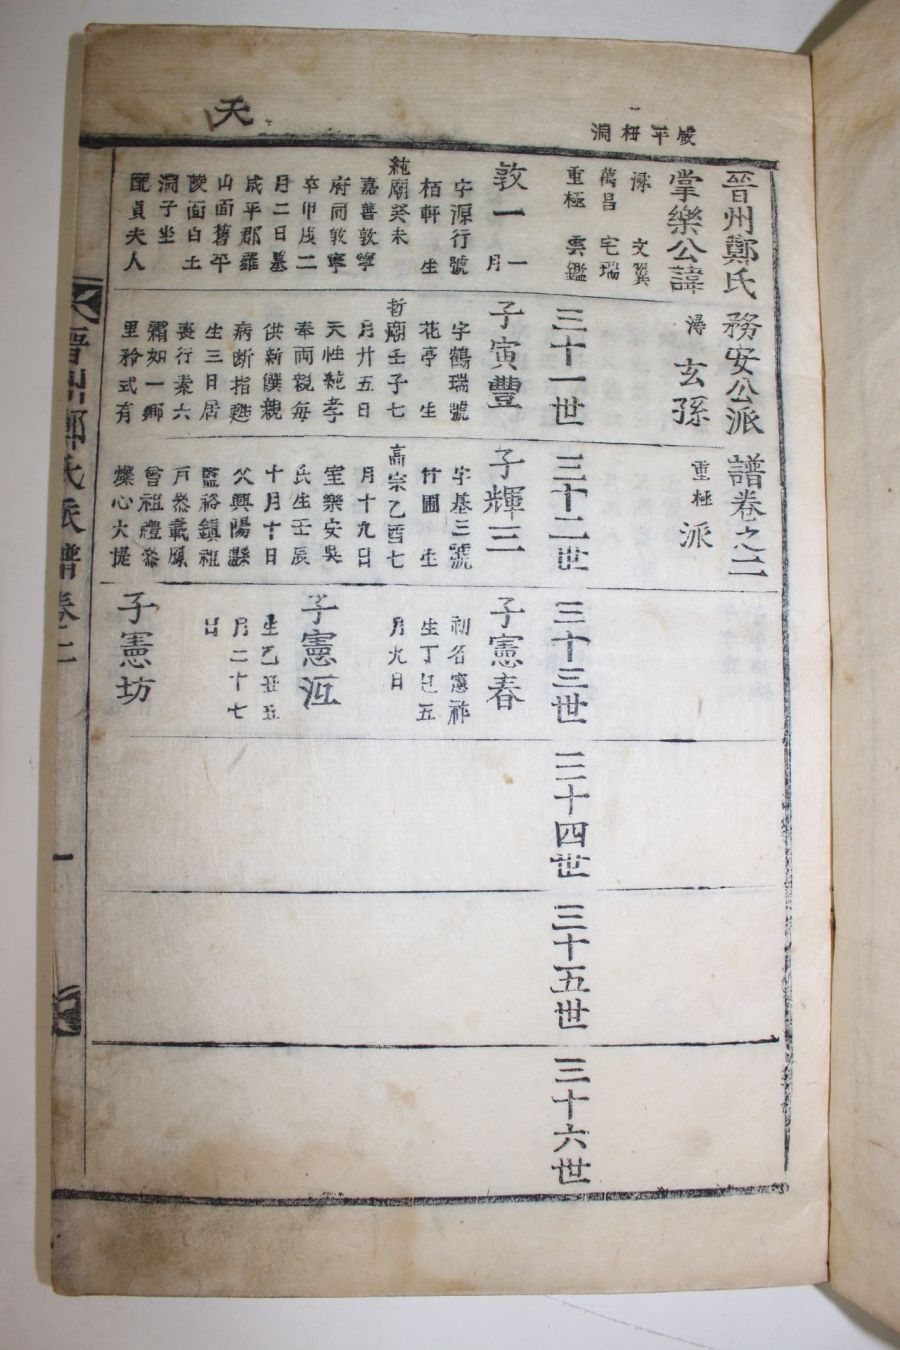 天
咸平梅洞
晉州鄭氏務安公派譜卷之二
掌樂公諱潯玄孫重極派
溁 文翼
萬昌 宅瑞
重極 雲鑑
三十一世
三十二世
三十三世
三十四世
三十五世
三十六世
敦一
字源行號
栢軒生
純廟癸未一月
嘉善敦寧
府同敦寧
卒甲戌二
月二日墓
咸平郡羅
山面舊平
陵面白土
洞子坐
配貞夫人
子寅豐
字鶴瑞號
花亭生
哲廟壬子七
月廿五日
天性純孝
奉兩親每
供新饌親
病斷指甦
生三日居
喪行素六
霜如一鄉
里矜式有
子輝三
字基三號
竹圃生
高宗乙酉七
月十九日
室樂安吳
氏生壬辰
十月十日
父興陽縣
監裕鎮祖
戶叅載鳳
曾祖禮叅
燦心大提
子憲春
初名憲祚
生丁巳五
月九日
子憲沍
生乙丑五
月二十七
日
子憲坊
晉州鄭氏派譜卷二
一